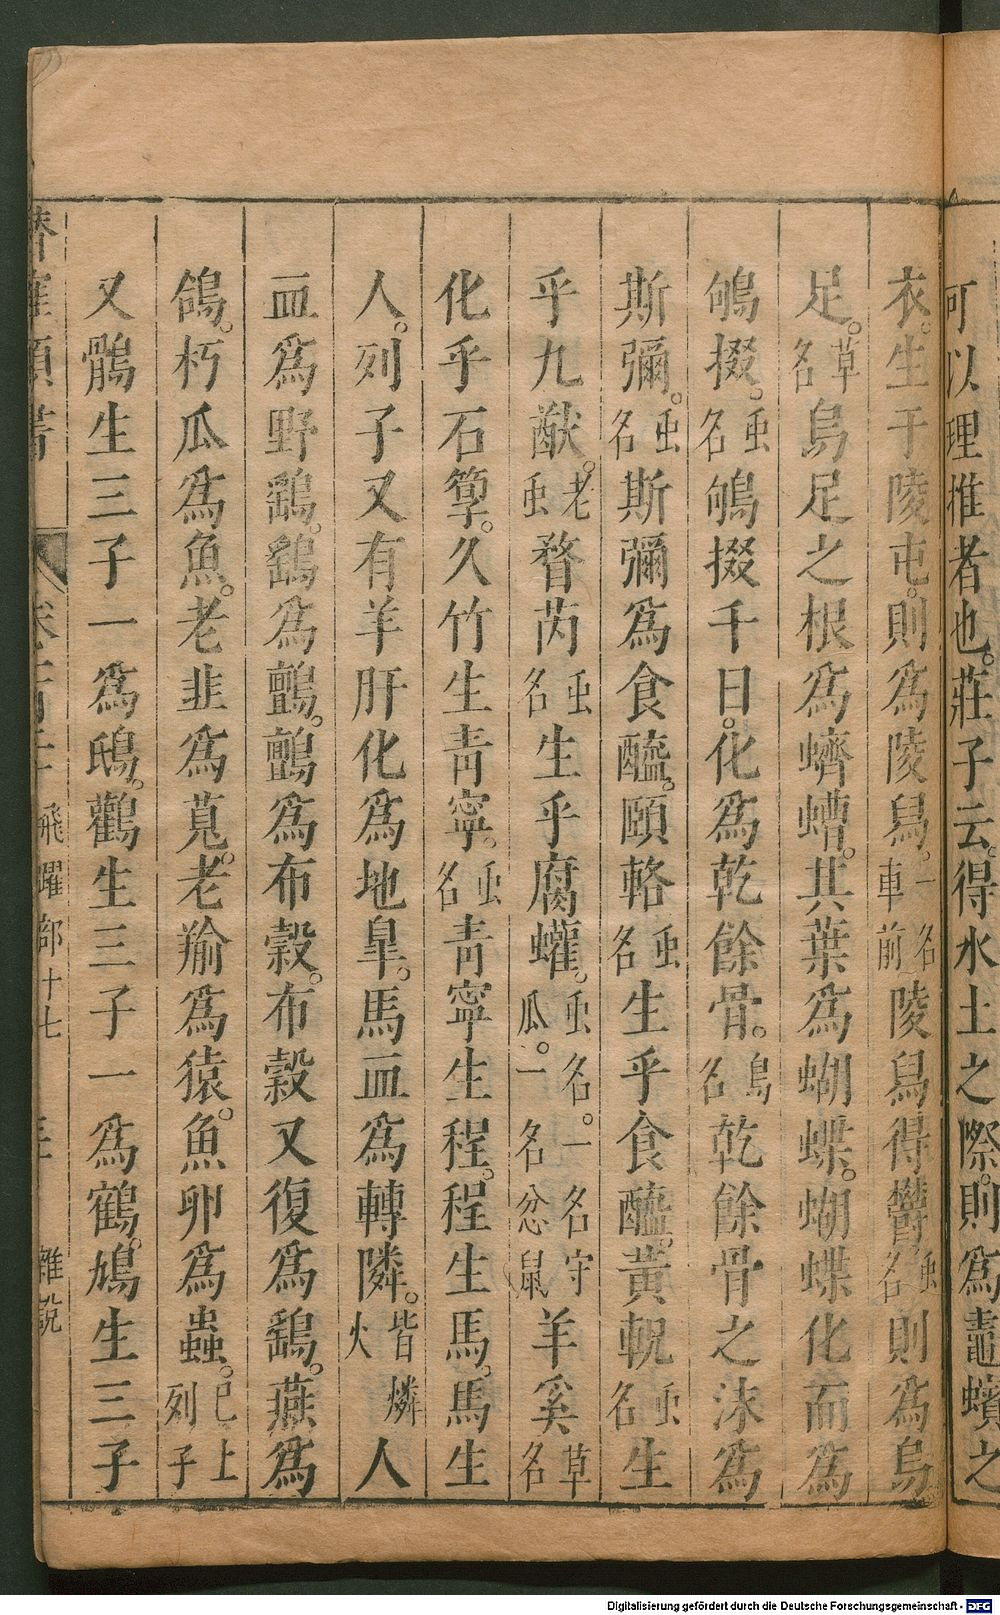 可以理推者也。莊子云。得水土之際。則爲鼃蠙之
衣。生于陵屯。則爲陵舄。一名車前陵舄得鬱虫名則爲烏
足。草名烏足之根爲蠐螬。其葉爲蝴蝶。蝴蝶化而爲
鴝掇。虫名鴝掇千日。化爲乾餘骨。鳥名乾餘骨之沫爲
斯彌。虫名斯彌爲食醯。頤輅虫名生乎食醯。黃軦虫名生
乎九猷。老虫瞀芮虫名生乎腐蠸。虫名。一名守瓜。一名忿鼠羊奚草名
化乎石𥯤。久竹生靑寧。虫名靑寧生程。程生馬。馬生
人。列子又有羊肝化爲地皐。馬血爲轉隣。皆燐火人
血爲野鷂。鷂爲鸇。鸇爲布穀。布穀又復爲鷂。燕爲
鴿。朽瓜爲魚。老韭爲莧。老羭爲猿。魚卵爲蟲。已上列子
又鶻生三子一爲鴟。鸛生三子一爲鶴。鳩生三子
飛躍部十七 雜說
Digitalisierung gefördert durch die Deutsche Forschungsgemeinschaft - DFG